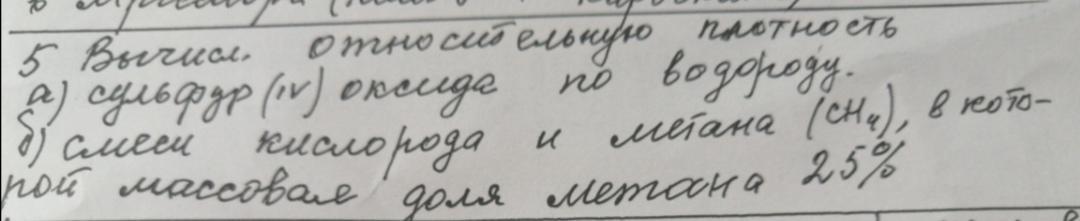 5 Вычисл. относительную плотность
а) сульфур (IV) оксида по водороду.
б) смеси кислорода и метана (CH4), в кото-
рой массовая доля метана 25%